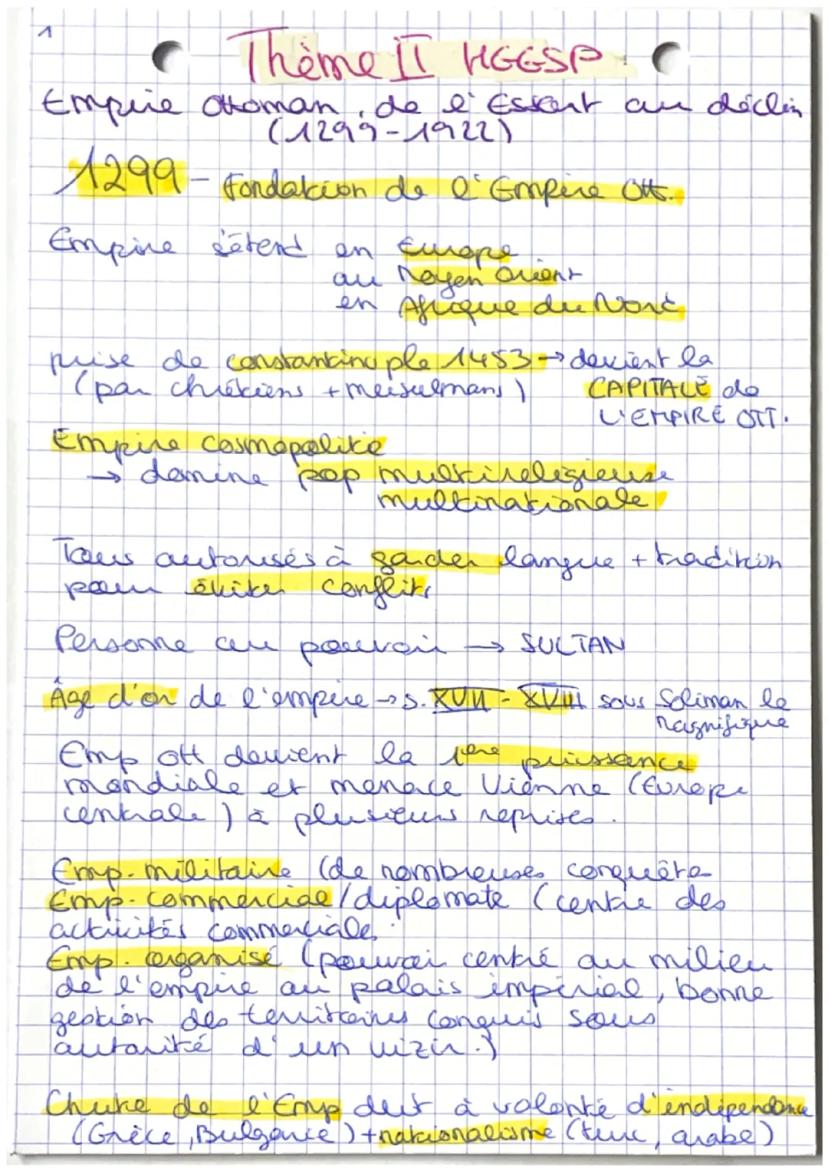 1
Thème II HGGSP
Empire ottoman, de l'Essort au déclin
(1299-1922)
1299 - Fondation de l'Empire Ott.
Empire s'étend en Europe
au Moyen Orient
en Afrique du Nord
prise de constantinople 1453 → devient la
(par chrétiens + musulmans) CAPITALE de
L'EMPIRE OTT.
Empire cosmopolite
→ domine pop multireligieuse
multinationale
Tous autorisés à garder langue + tradition
pour éviter conflits
Personne au pouvoir → SULTAN
Âge d'or de l'empire → s. XVII - XVIII sous Soliman le
Magnifique
Emp ott devient la 1ère puissance
mondiale et menace Vienne (Europe
centrale) à plusieurs reprises.
Emp. militaire (de nombreuses conquête
Emp. commercial/diplomate (centre des
activités commerciales.
Emp. organisé (pouvoir centré au milieu
de l'empire au palais impérial, bonne
gestion des territoires conquis sous
autorité d'un vizir.)
Chute de l'Emp dut à volonté d'indépendance
(Grèce, Bulgarie) + nationalisme (turc, arabe)